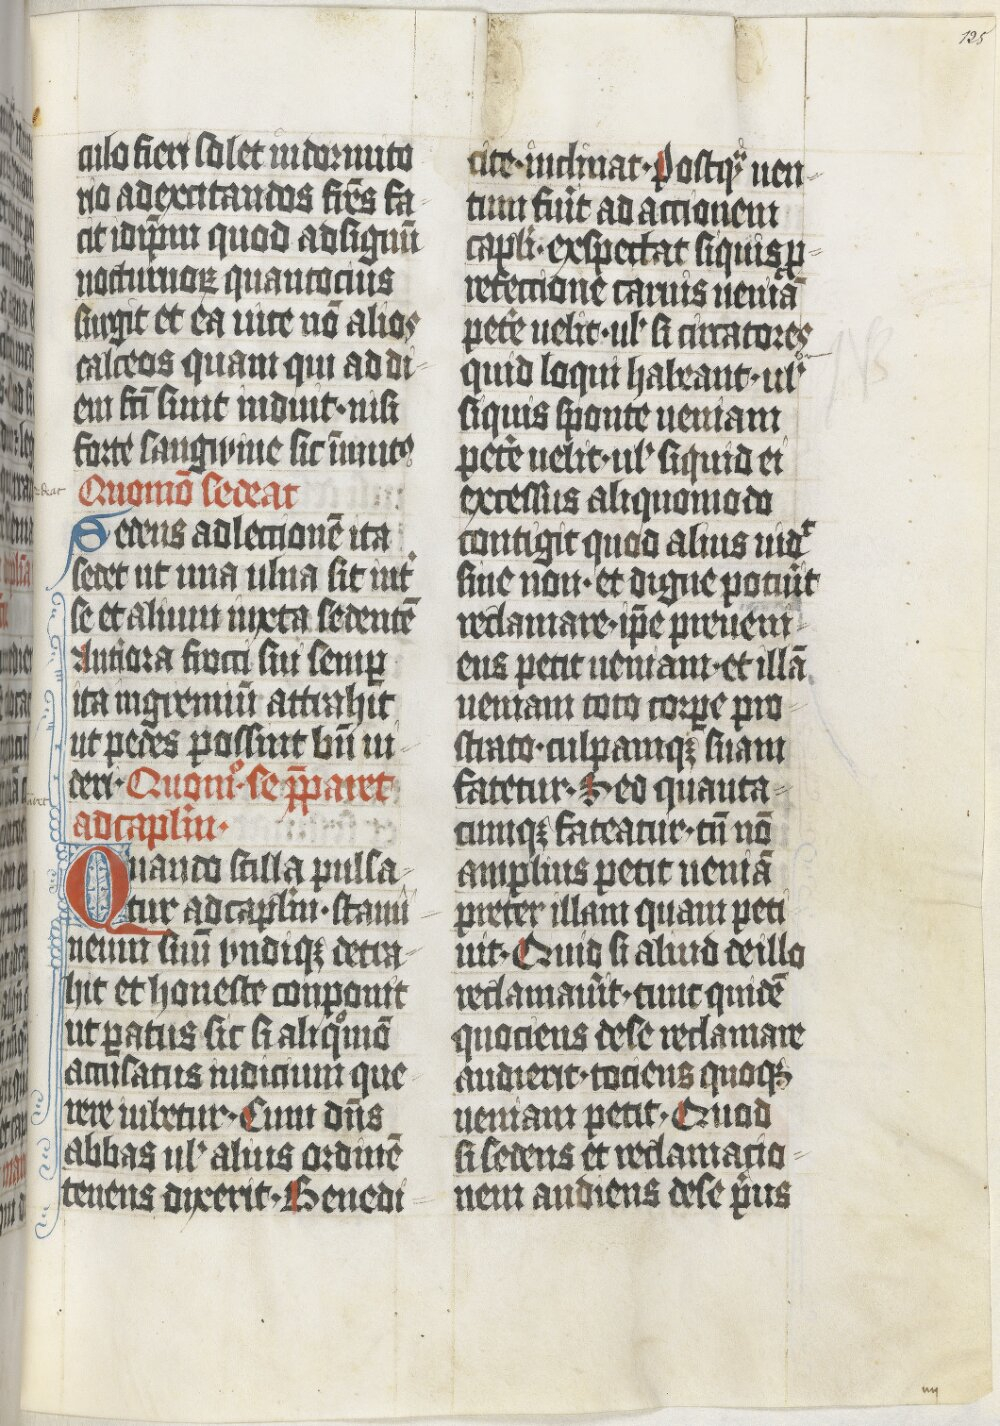 125
culo fieri solet in dormito
rio ad excitandos fr̄es fa-
cit idip̄m quod ad signū
nocturnoꝝ quantocius
surgit et ea uice nō alios
calceos quam qui ad di-
em fr̄i sunt induit· nisi
forte sangwine sic
Quomō sedeat
Sedens ad lectionē ita
sedet ut una ulna sit int̄
se et alium iuxta sedentē
Anteriora frocci sui semꝑ
ita in gremiū attrahit
ut pedes possint bn̄ ui-
deri· Quomo· se p̄paret
ad capl̄m·
Quando scilla pulsa-
tur ad capl̄m· stami-
neum suū vndiqꝫ detra-
hit et honeste conponit
ut paratus sit si aliqͦmō
accusatus iudicium que-
rere iubetur· Cum dn̄s
abbas ul̓ alius ordinē
tenens dixerit· Benedi-
cite· inclinat· Postqͣ uen-
tum fūit ad accionem
capl̄i· exspectat si quis ꝓ
refectione carnis ueniā
petere uelit· ul̓ si circatores
quid loqui habeant· ul̓
si quis sponte ueniam
petere uelit· ul̓ si quid ei
excessus aliquomodo
contigit quod alius uidͬ
siue non· et digne potūit
reclamare· ip̄e preueni-
ens petit ueniam· et illā
ueniam toto corpe pro-
strato· culpamqꝫ suam
fatetur· Sed quanta-
cumqꝫ fateatur· tn̄ nō
amplius petit ueniā
preter illam quam peti
uit· Quid si aliud de illo
reclamaūit· tunc quidē
quociens de se reclamare
audierit· tociens quoqꝫ
ueniam petit· Quod
si sedens et reclamacio-
nem audiens de se p̄us